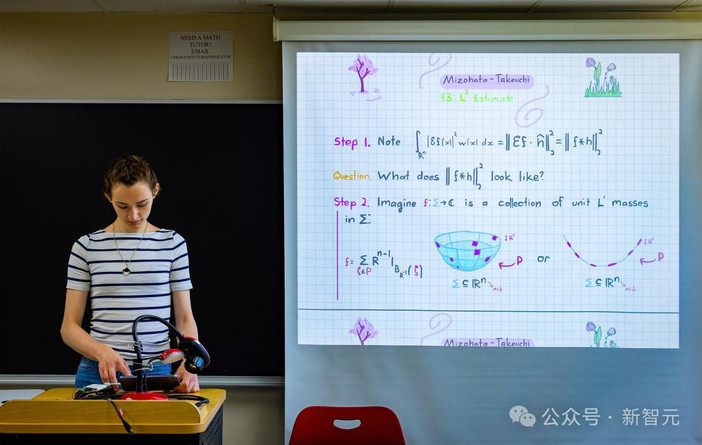 NEED A MATH
TUTOR?
EMAIL
Mizohata-Takeuchi
§3. L² Estimate
Step 1. Note ∫_{ℝⁿ} |Ef(x)|² w(x) dx = ‖Ef · ĥ‖₂² = ‖f*h‖₂²
Question. What does ‖f*h‖₂² look like?
Step 2. Imagine f: Σ→ℂ is a collection of unit L¹ masses
in Σ.
f = Σ_{ζ∈P} R^{n-1} 1_{B_{R⁻¹}(ζ)}
P
or
P
Σ ⊆ ℝⁿ
Σ ⊆ ℝⁿ
Mizohata-Takeuchi
公众号 · 新智元